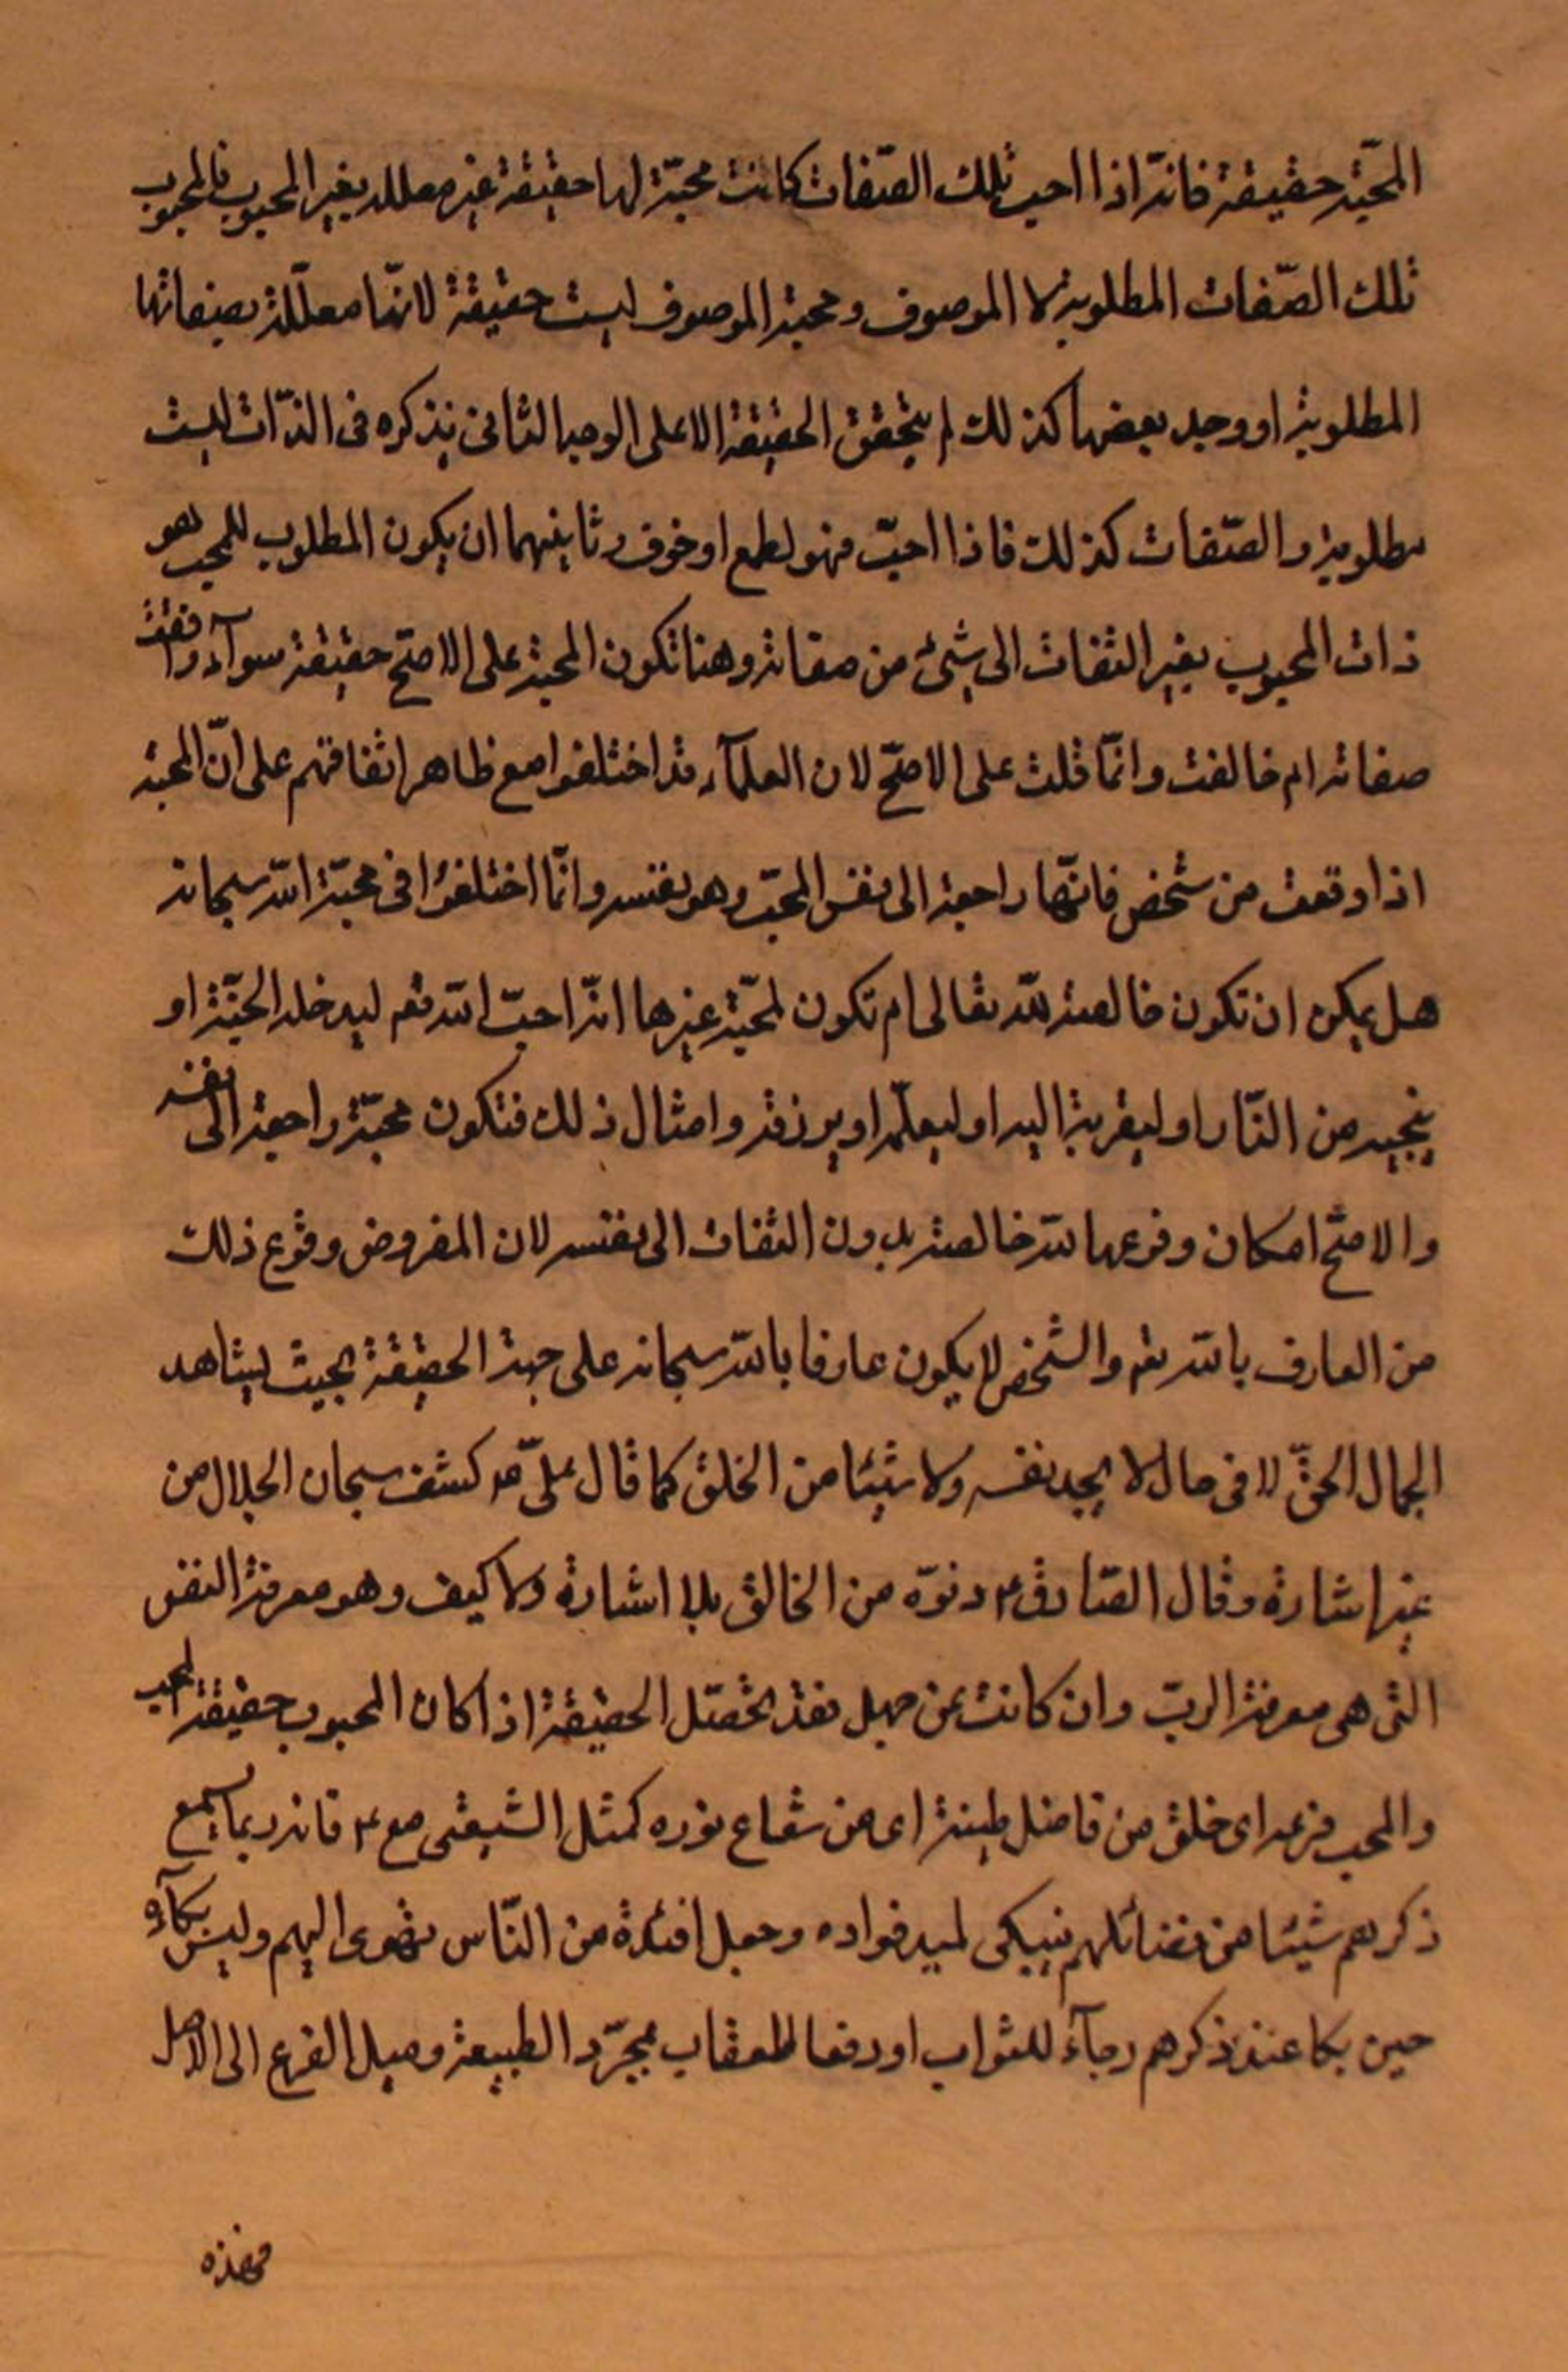 المحبّة حقيقة فانّه اذا احب تلك الصّفات كانت محبّة لها حقيقة غير معلله بغير المحبوب فالمحبوب
تلك الصّفات المطلوبة لا الموصوف و محبة الموصوف ليست حقيقة لانّها معلّلة بصفاتها
المطلوبة او وجد بعضها كذلك لم يتحقق الحقيقة الا على الوجه الثانى نذكره فى الذّات ليست
مطلوبة و الصّفات كذلك فاذا احبّ فهو لطمع او خوف و ثانيهما ان يكون المطلوب للمحب هو
ذات المحبوب بغير التفات الى شىء من صفاته و هنا تكون المحبة على الاصّح حقيقة سوآء وافقت
صفاته ام خالفت و انّما قلت على الاصّح لان العلمآء قد اختلفوا مع ظاهر اتفاقهم على انّ المحبة
اذا وقعت من شخص فانّها راجعة الى نفس المحبّ و هو بنفسه و انّما اختلفوا فى محبّة اللّه سبحانه
هل يمكن ان تكون خالصة للّه تعالى ام تكون لمحبّة غيرها انّه احبّ اللّه تعم ليدخله الجنّة او
ينجيه من النّار او ليقربة اليه او ليعلّمه او يرزقه و امثال ذلك فتكون محبّة راجعة الى نفسه
و الاصّح امكان وقوعها للّه خالصة بدون التفات الى نفسه لان المفروض وقوع ذلك
من العارف باللّه تعم و الشخص لا يكون عارفا باللّه سبحانه على جهة الحقيقة بحيث يشاهد
الجمال الحقّ الا فى حال لا يجد نفسه و لا شيئا من الخلق كما قال علىّ ع كشف سبحان الجلال من
غير اشارة و قال الصّادق ع دنوّه من الخالق بلا اشارة و لا كيف و هو معرفة النفس
التى هى معرفة الربّ و ان كانت عن جهل فقد تحصّل الحقيقة اذا كان المحبوب حقيقة لمحب
و المحب فرعه اى خلق من فاضل طينة اى من شعاع نوره كمثل الشيعتى مع ع فانه ربما يسمع
ذكرهم شيئا من فضائلهم فيبكى لميد فواده و جعل افئدة من النّاس تهوى اليهم و ليس بكآءه
حين بكا عند ذكرهم رجآء للثواب او دفعا للعقاب بمجرّد الطبيعة و ميل الفرع الى الاصل
فهذه